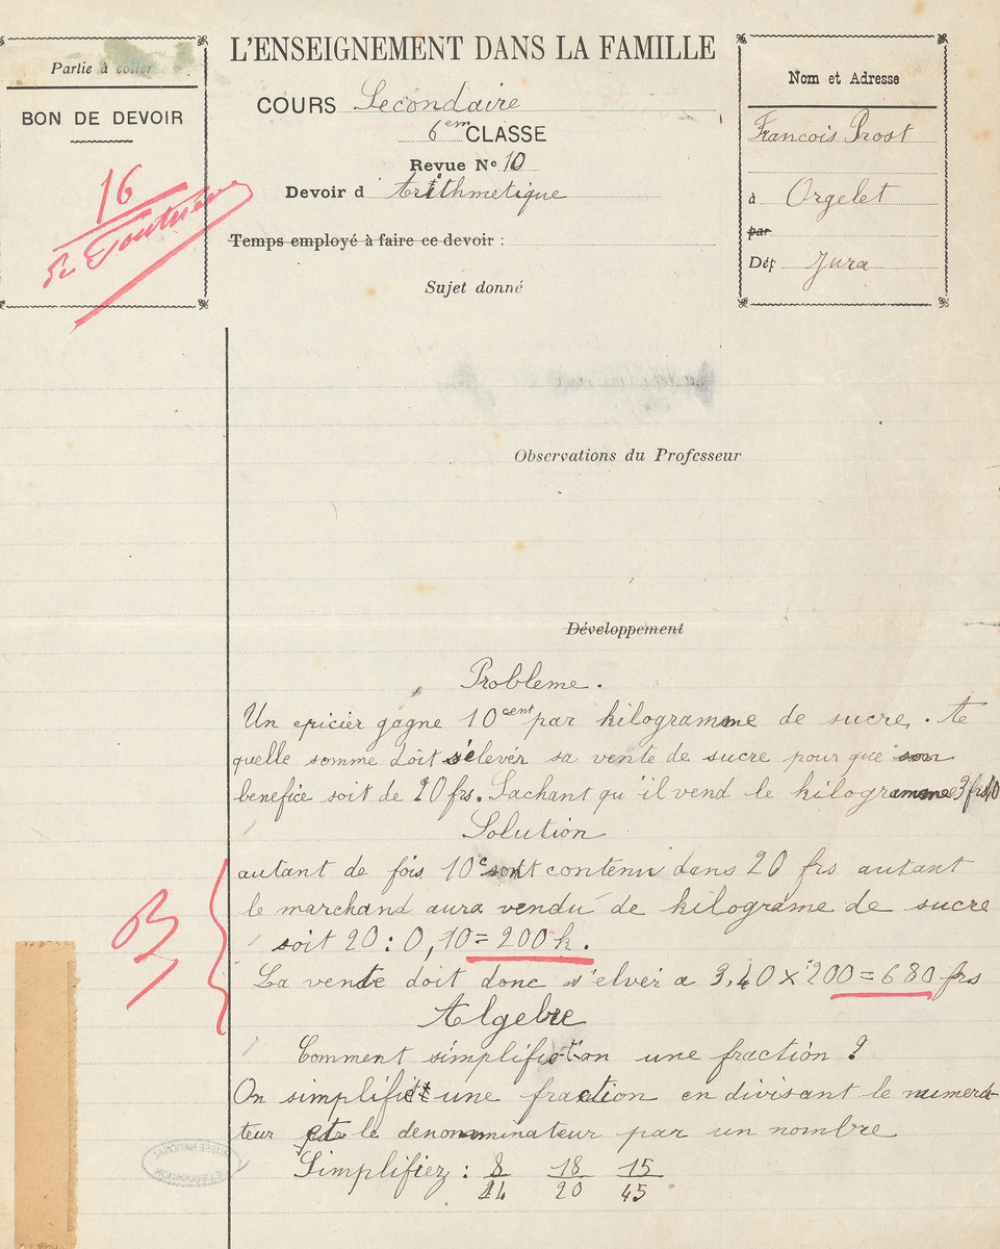 L'ENSEIGNEMENT DANS LA FAMILLE
Partie à coller
BON DE DEVOIR
16
COURS Secondaire
6em CLASSE
Revue No 10
Devoir d Arithmetique
Temps employé à faire ce devoir :
Sujet donné
Nom et Adresse
Francois Prost
à Orgelet
par
Dép Jura
Observations du Professeur
Développement
Probleme.
Un epicier gagne 10cent par kilogramme de sucre. A
quelle somme doit s'élever sa vente de sucre pour que son
benefice soit de 20 frs. Sachant qu'il vend le kilogramme 3frs40
Solution
autant de fois 10c sont contenu dans 20 frs autant
le marchand aura vendu de kilograme de sucre
soit 20 : 0,10 = 200 k.
La vente doit donc s'elver a 3,40 x 200 = 680 frs
B
Algebre
Comment simplifiet-on une fraction ?
On simplifie une fraction en divisant le numera-
teur et le denominateur par un nombre
Simplifiez : 8/24 18/20 15/45